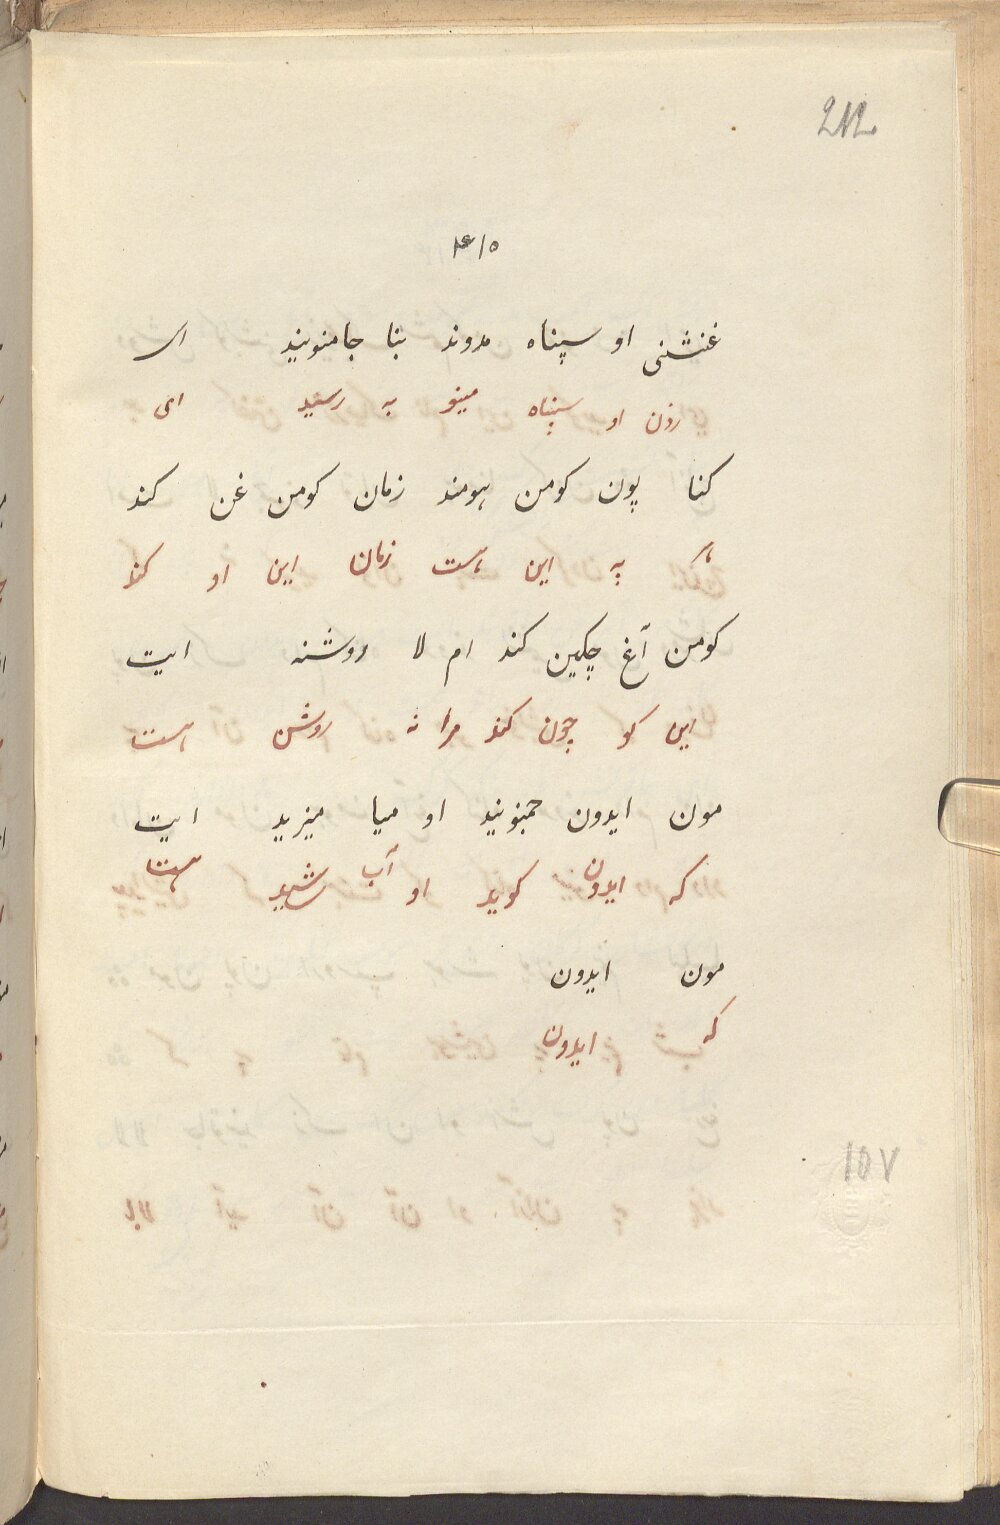 212
۴۱۵
غنشنی او سپناه مدوند بنا جامنویند ای
رذن او سپناه مینو به رسید ای
کنا پون کومن هومند زمان کومن غن کند
هر به این هست زمان این او کند
کومن آغ چکین کند ام لا روشنه ایت
این کو چون کند مرا نه روشن هست
مون ایدون جمنوید او میا میزید ایت
که ایدون کوید او آب هست
مون ایدون
که ایدون
107